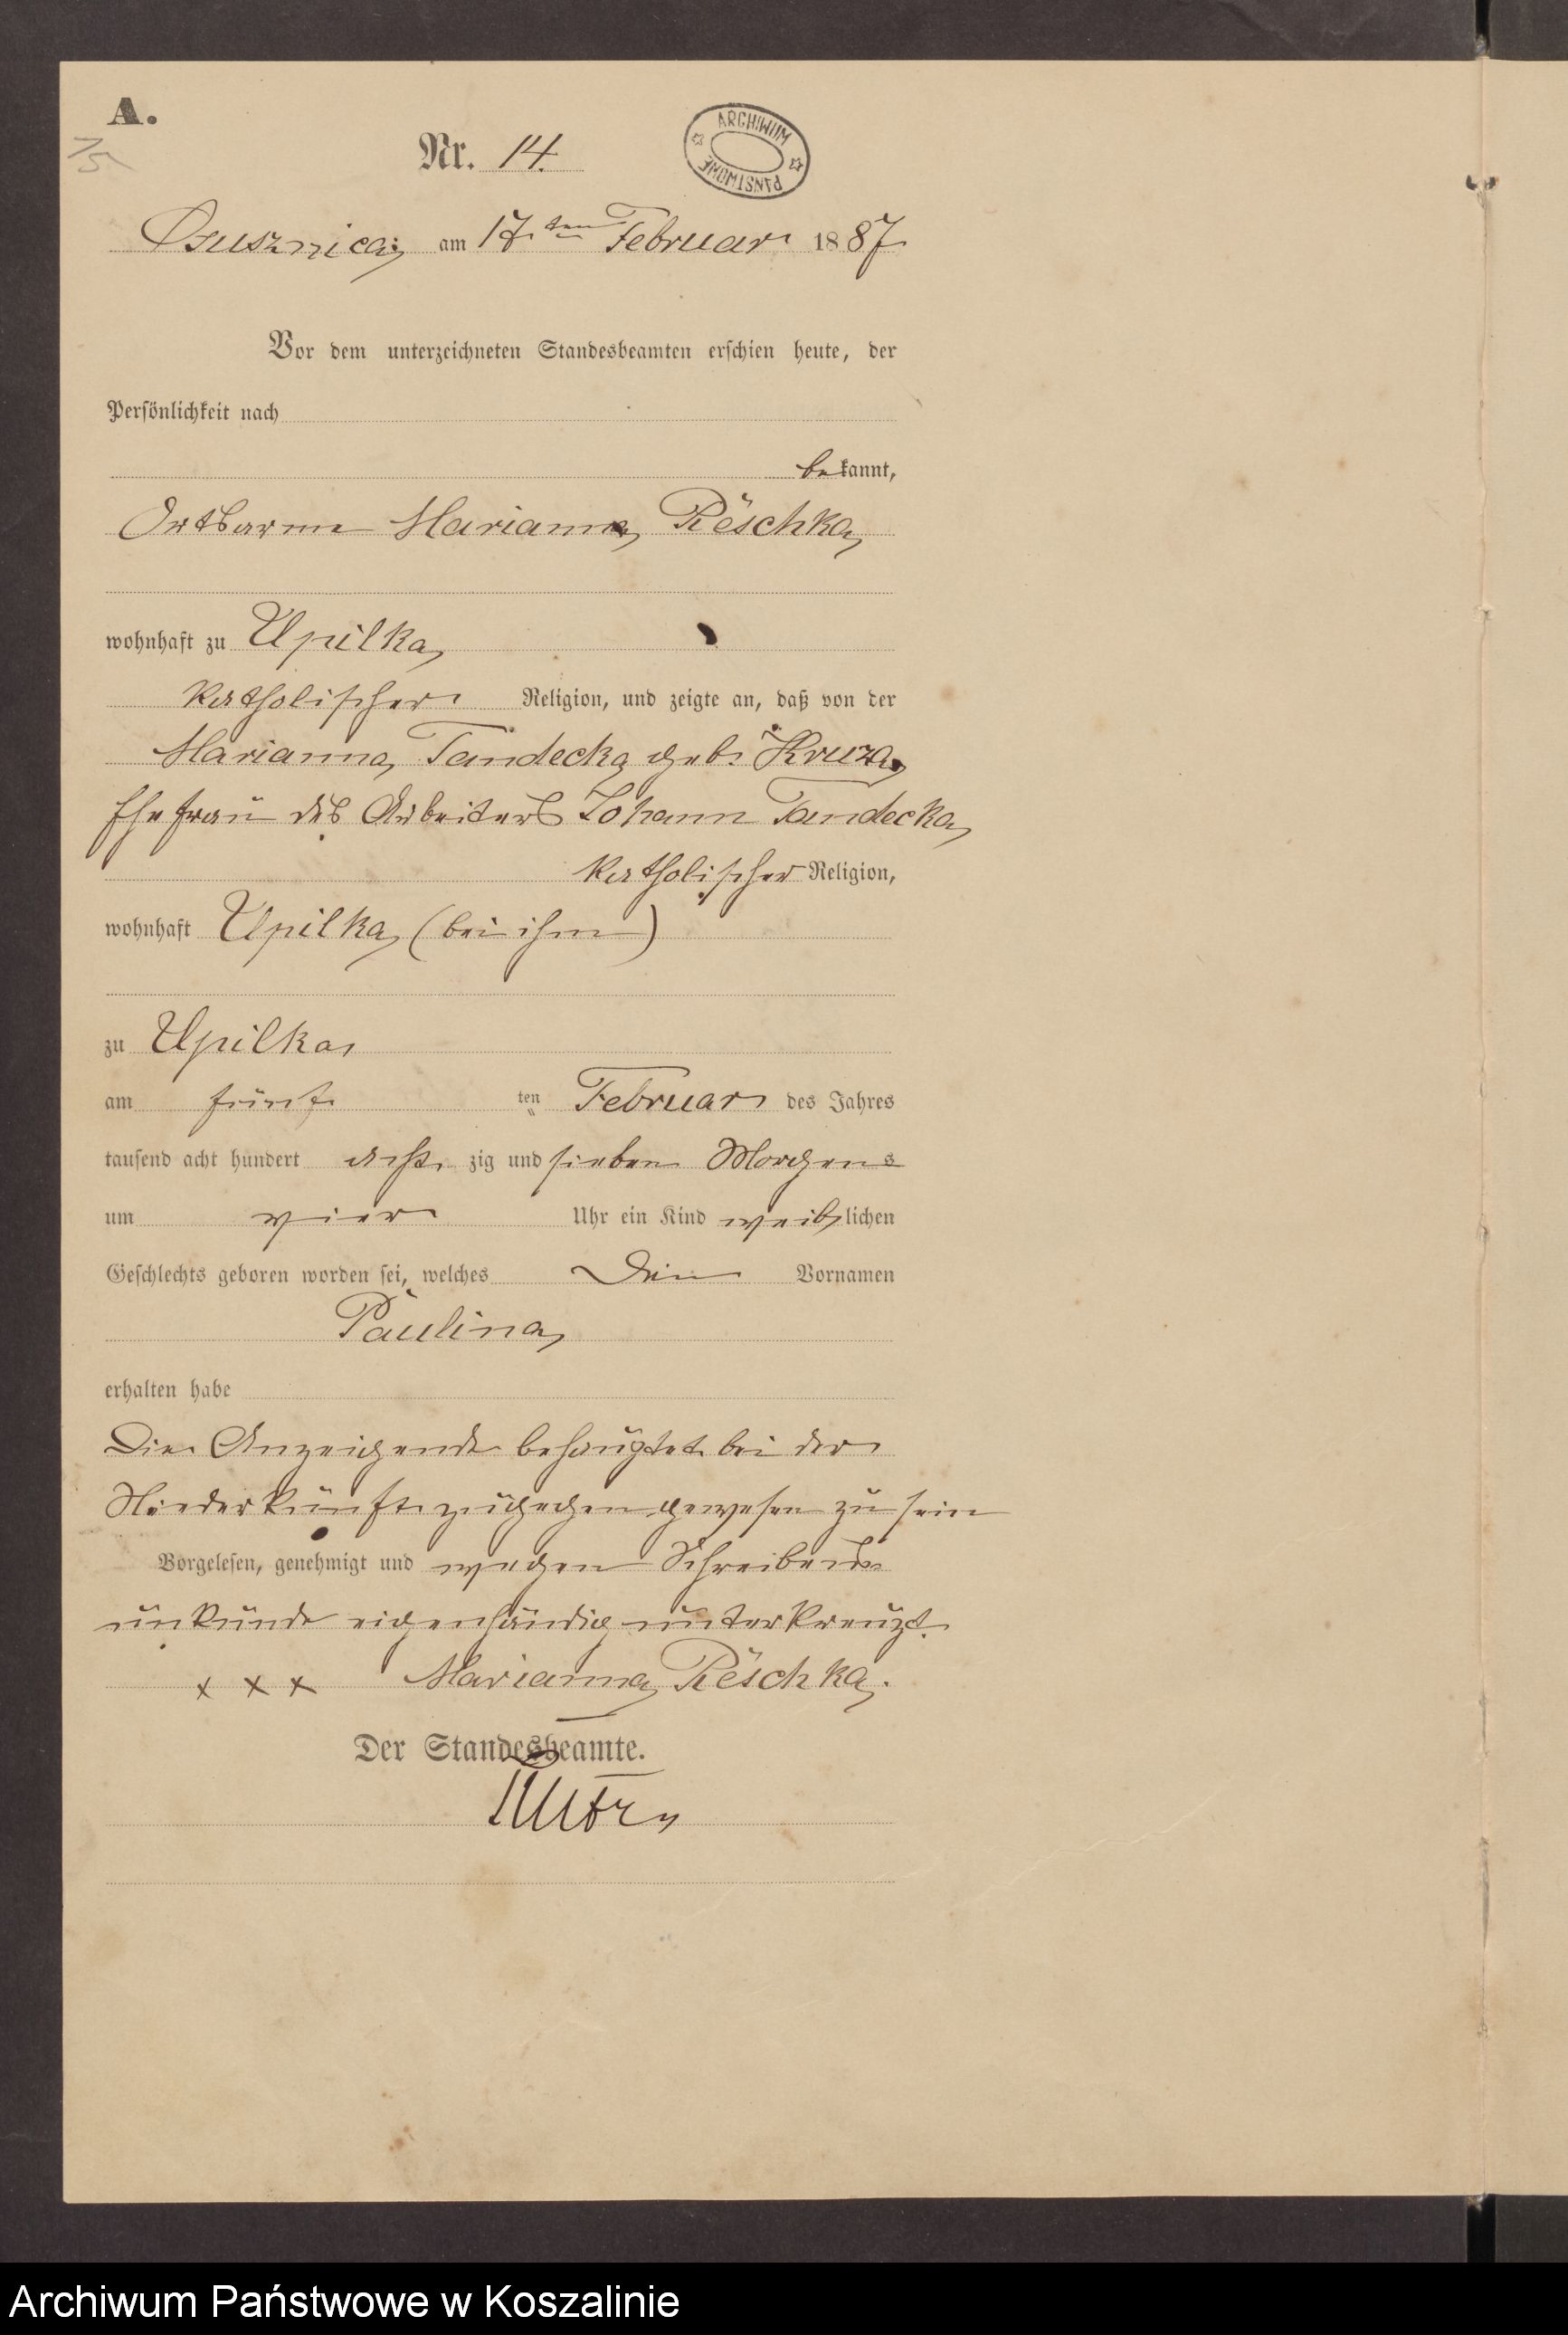 A.
75
Nr. 14.
ARCHIWUM
PAŃSTWOWE
Osusznica am 17ten Februar 1887
Vor dem unterzeichneten Standesbeamten erschien heute, der
Persönlichkeit nach
bekannt,
Ortsarme Marianna Rëschka
wohnhaft zu Upilka
katholischer Religion, und zeigte an, daß von der
Marianna Tandecka geb.
Ehefrau des Arbeiters Johann Tandecka
katholischer Religion,
wohnhaft Upilka (bei ihm)
zu Upilka
am fünf ten Februar des Jahres
tausend acht hundert acht zig und sieben Morgens
um vier Uhr ein Kind weiblichen
Geschlechts geboren worden sei, welches den Vornamen
Paulina
erhalten habe
Die Anzeigende behauptet bei der
Niederkunft zugegen gewesen zu sein
Vorgelesen, genehmigt und wegen Schreibens
unkunde eigenhändig unterkreuzt.
x x x Marianna Rëschka.
Der Standesbeamte.
Archiwum Państwowe w Koszalinie